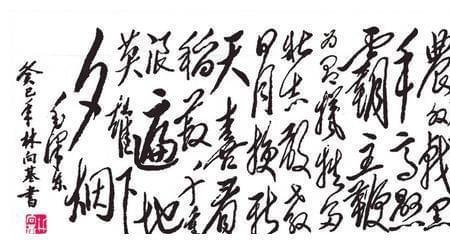 農奴戟黑
手高懸
霸主鞭
为有犧牲多
壮志敢教
日月换新
天喜看
稻菽千重
浪遍地
英雄下
夕烟
毛澤东
癸巳年林向基書